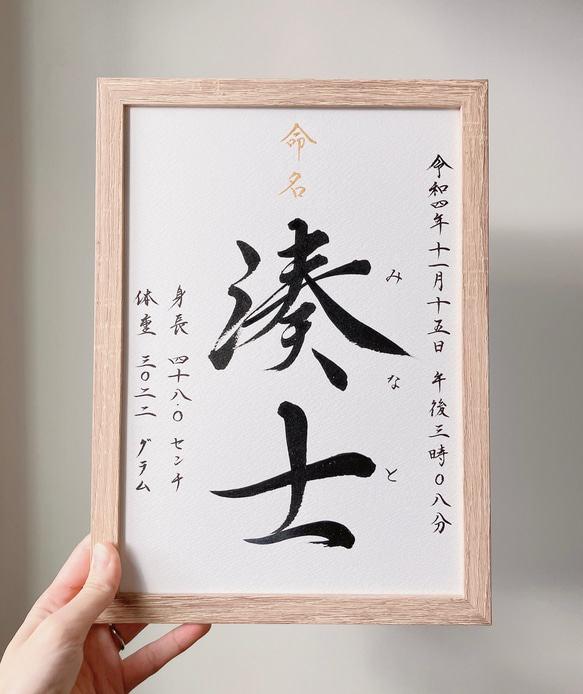 令和四年十一月十五日 午後三時〇八分
命名
湊士
みなと
身長 四十八.〇 センチ
体重 三〇二二 グラム